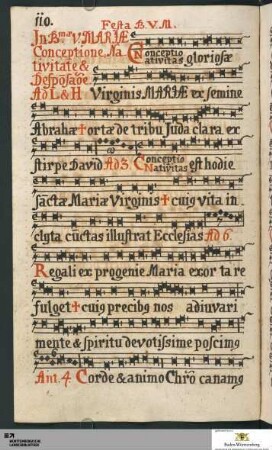 110. Festa B. V. M.
In B.mæ V. MARIÆ
Conceptione, Na Conceptio Nativitas gloriosæ
tivitate &
Desposaõe
Ad L & H Virginis MARIÆ ex semine
Abrahæ † ortæ de tribu Juda clara ex
stirpe David Ad 3. Conceptio Nativitas est hodie
sãctæ Mariæ Virginis † cuiꝰ vita in
clyta cũctas illustrat Ecclesias Ad 6.
Regali ex progenie Maria exorta re
fulget † cuiꝰ precibꝰ nos adiuvari
mente & spiritu devotissime poscimꝰ
Ant. 4 Corde & animo Chrõ canamꝰ
Baden-Württemberg